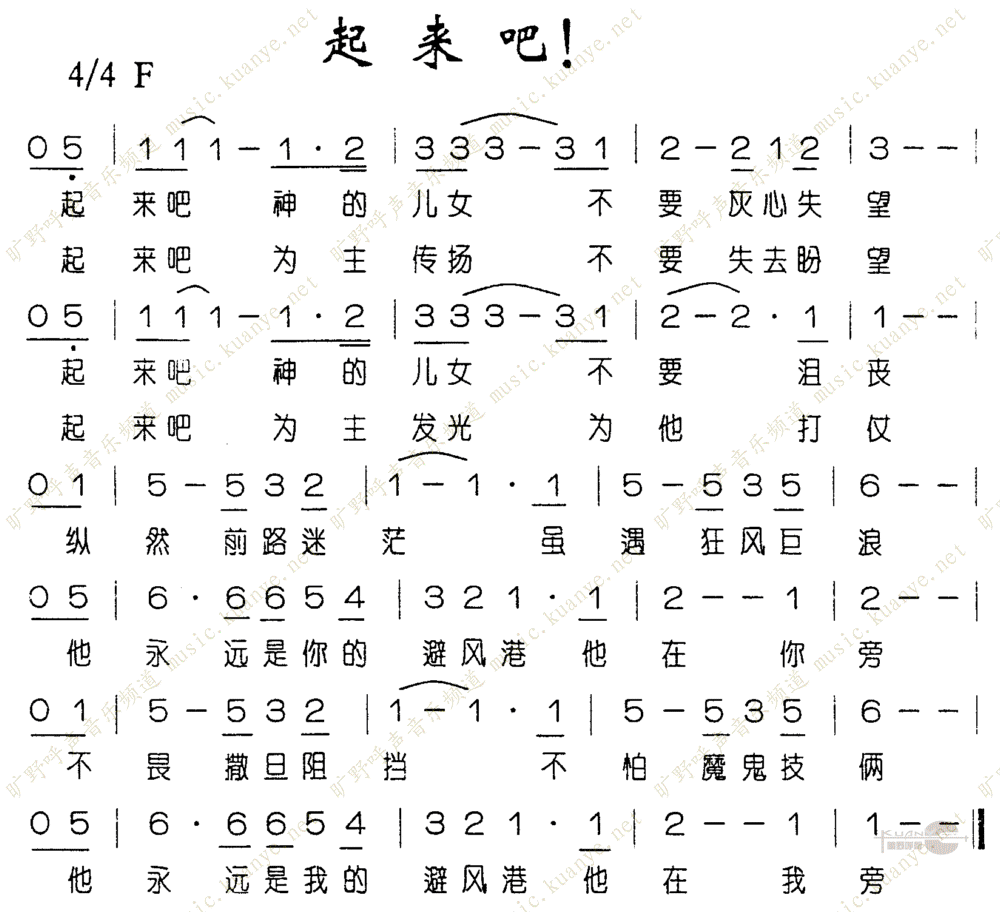 起来吧!
4/4 F
0 5 | 1 1 1 - 1 · 2 | 3 3 3 - 3 1 | 2 - 2 1 2 | 3 - -
起 来吧 神的儿女 不要灰心失望
起 来吧 为主传扬 不要失去盼望
0 5 | 1 1 1 - 1 · 2 | 3 3 3 - 3 1 | 2 - 2 · 1 | 1 - -
起 来吧 神的儿女 不要沮丧
起 来吧 为主发光 为他打仗
0 1 | 5 - 5 3 2 | 1 - 1 · 1 | 5 - 5 3 5 | 6 - -
纵然前路迷茫 虽遇狂风巨浪
0 5 | 6 · 6 6 5 4 | 3 2 1 · 1 | 2 - - 1 | 2 - -
他永远是你的避风港他在你旁
0 1 | 5 - 5 3 2 | 1 - 1 · 1 | 5 - 5 3 5 | 6 - -
不畏撒旦阻挡 不怕魔鬼技俩
0 5 | 6 · 6 6 5 4 | 3 2 1 · 1 | 2 - - 1 | 1 - -
他永远是我的避风港他在我旁
旷野呼声音乐频道 music.kuanye.net